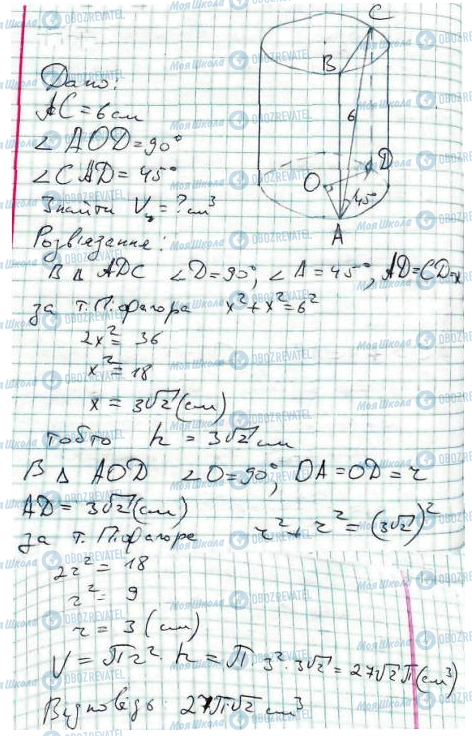 Дано:
AC = 6 см
∠AOD = 90°
∠CAD = 45°
Знайти Vц = ? см³
Розв'язання:
В △ ADC ∠D = 90°, ∠A = 45°, AD = CD = x
за т. Піфагора x² + x² = 6²
2x² = 36
x² = 18
x = 3√2 (см)
тобто h = 3√2 см
В △ AOD ∠O = 90°, OA = OD = r
AD = 3√2 (см)
за т. Піфагора r² + r² = (3√2)²
2r² = 18
r² = 9
r = 3 (см)
V = Πr² · h = Π 3² · 3√2 = 27√2 Π (см³)
Відповідь 27Π√2 см³
C
B
6
D
O
45°
A
Моя Школа
OBOZREVATEL